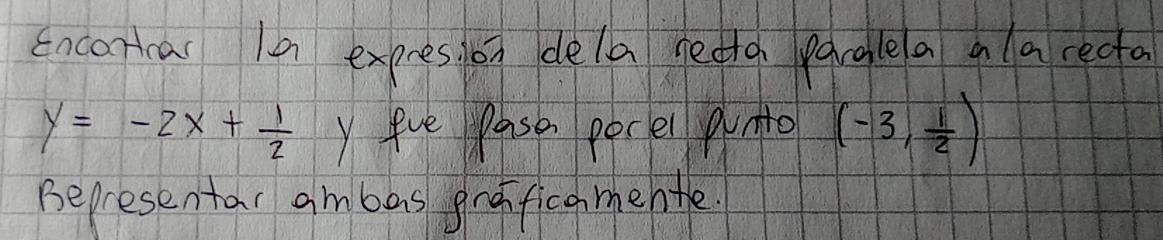 Encontrar la expresión de la recta paralela a la recta
y = -2x + 1/2 y que pasa por el punto (-3, 1/2)
Representar ambas gráficamente.